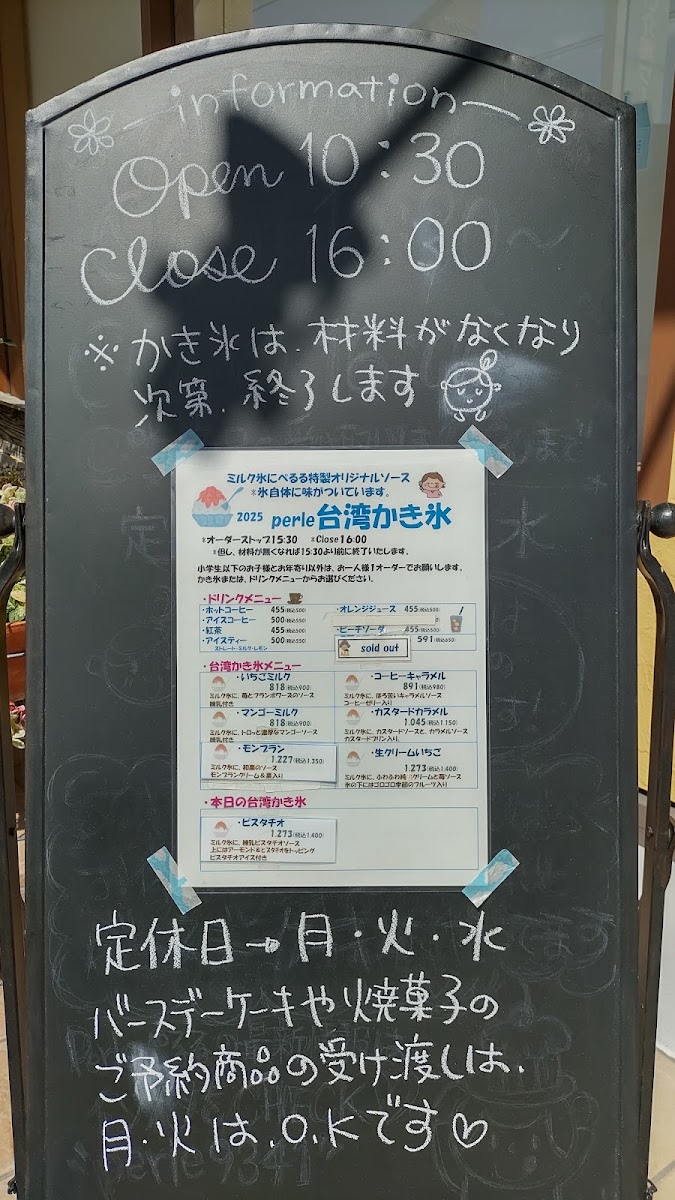 information
Open 10:30
Close 16:00
※かき氷は、材料がなくなり
次第、終了します
ミルク氷にぺるる特製オリジナルソース
*氷自体に味がついています。
2025 perle台湾かき氷
*オーダーストップ15:30 *Close16:00
*但し、材料が無くなれば15:30より前に終了いたします。
小学生以下のお子様とお年寄り以外は、お一人様1オーダーでお願いします。
かき氷または、ドリンクメニューからお選びください。
・ドリンクメニュー
・ホットコーヒー 455(税込500)
・アイスコーヒー 500(税込550)
・紅茶 455(税込500)
・アイスティー 500(税込550)
ストレート・ミルク・レモン
・オレンジジュース 455(税込500)
・ピーチソーダ 455(税込500)
591(税込650)
sold out
・台湾かき氷メニュー
・いちごミルク
818(税込900)
ミルク氷に、苺とフランボワーズのソース
練乳付き
・コーヒーキャラメル
891(税込980)
ミルク氷に、ほろ苦いキャラメルソース
コーヒーゼリー入り
・マンゴーミルク
818(税込900)
ミルク氷に、トロっと濃厚なマンゴーソース
練乳付き
・カスタードカラメル
1.045(税込1.150)
ミルク氷に、カスタードソースと、カラメルソース
カスタードプリン入り
・モンブラン
1.227(税込1.350)
ミルク氷に、和栗のソース
モンブランクリーム&栗入り
・生クリームいちご
1.273(税込1400)
ミルク氷に、ふわふわ純生クリームと苺ソース
氷の下にはゴロゴロ季節のフルーツ入り
・本日の台湾かき氷
・ピスタチオ
1.273(税込1.400)
ミルク氷に、練乳ピスタチオソース
上にはアーモンド&ピスタチオをトッピング
ピスタチオアイス付き
定休日→月・火・水
バースデーケーキや焼菓子の
ご予約商品の受け渡しは、
月・火は、O.Kです♡